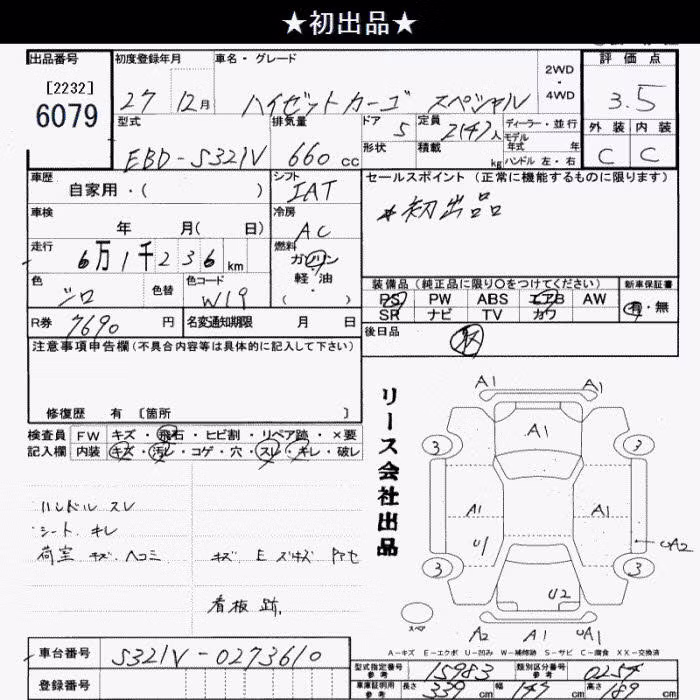 ★初出品★
出品番号
[2232]
6079
初度登録年月
27 12月
車名・グレード
ハイゼットカーゴ スペシャル
2WD
・
4WD
評価点
3.5
外装 内装
C C
型式
EBD-S321V
排気量
660 cc
ドア
5
形状
定員
2(4)人
積載
kg
ディーラー・並行
モデル
年式 年
ハンドル 左・右
車歴
自家用・( )
シフト
IAT
セールスポイント (正常に機能するものに限ります)
*初出品
車検
年 月( 日)
冷房
AC
走行
6万1千236 km
燃料
ガソリン
軽・油
( )
色
シロ
色替
色コード
W19
装備品 (純正品に限り○をつけてください)
PS PW ABS エアB AW
SR ナビ TV カワ
新車保証書
有・無
R券 7690 円
名変通知期限 月 日
後日品
注意事項申告欄 (不具合内容等は具体的に記入して下さい)
修復歴 有 〔箇所 〕
検査員
記入欄
FW キズ・飛石・ヒビ割・リペア跡・×要
内装 キズ・汚レ・コゲ・穴・スレ・キレ・破レ
ハンドル スレ
シート キレ
荷室 キズ ヘコミ
キズ E
看板跡.
リース会社出品
A1 A1
A1
3 3
A1 A1
U1
UA2
3 3
U2
スペア
A2 A1 UA1
A-キズ E-エクボ U-凹み W-補修跡 S-サビ C-腐食 XX-交換済
車台番号 S321V-0273610
登録番号
型式指定番号
参考
15983
類別区分番号
参考
0254
車庫証明用
参考
長さ 339 cm 幅 147 cm 高さ 189 cm